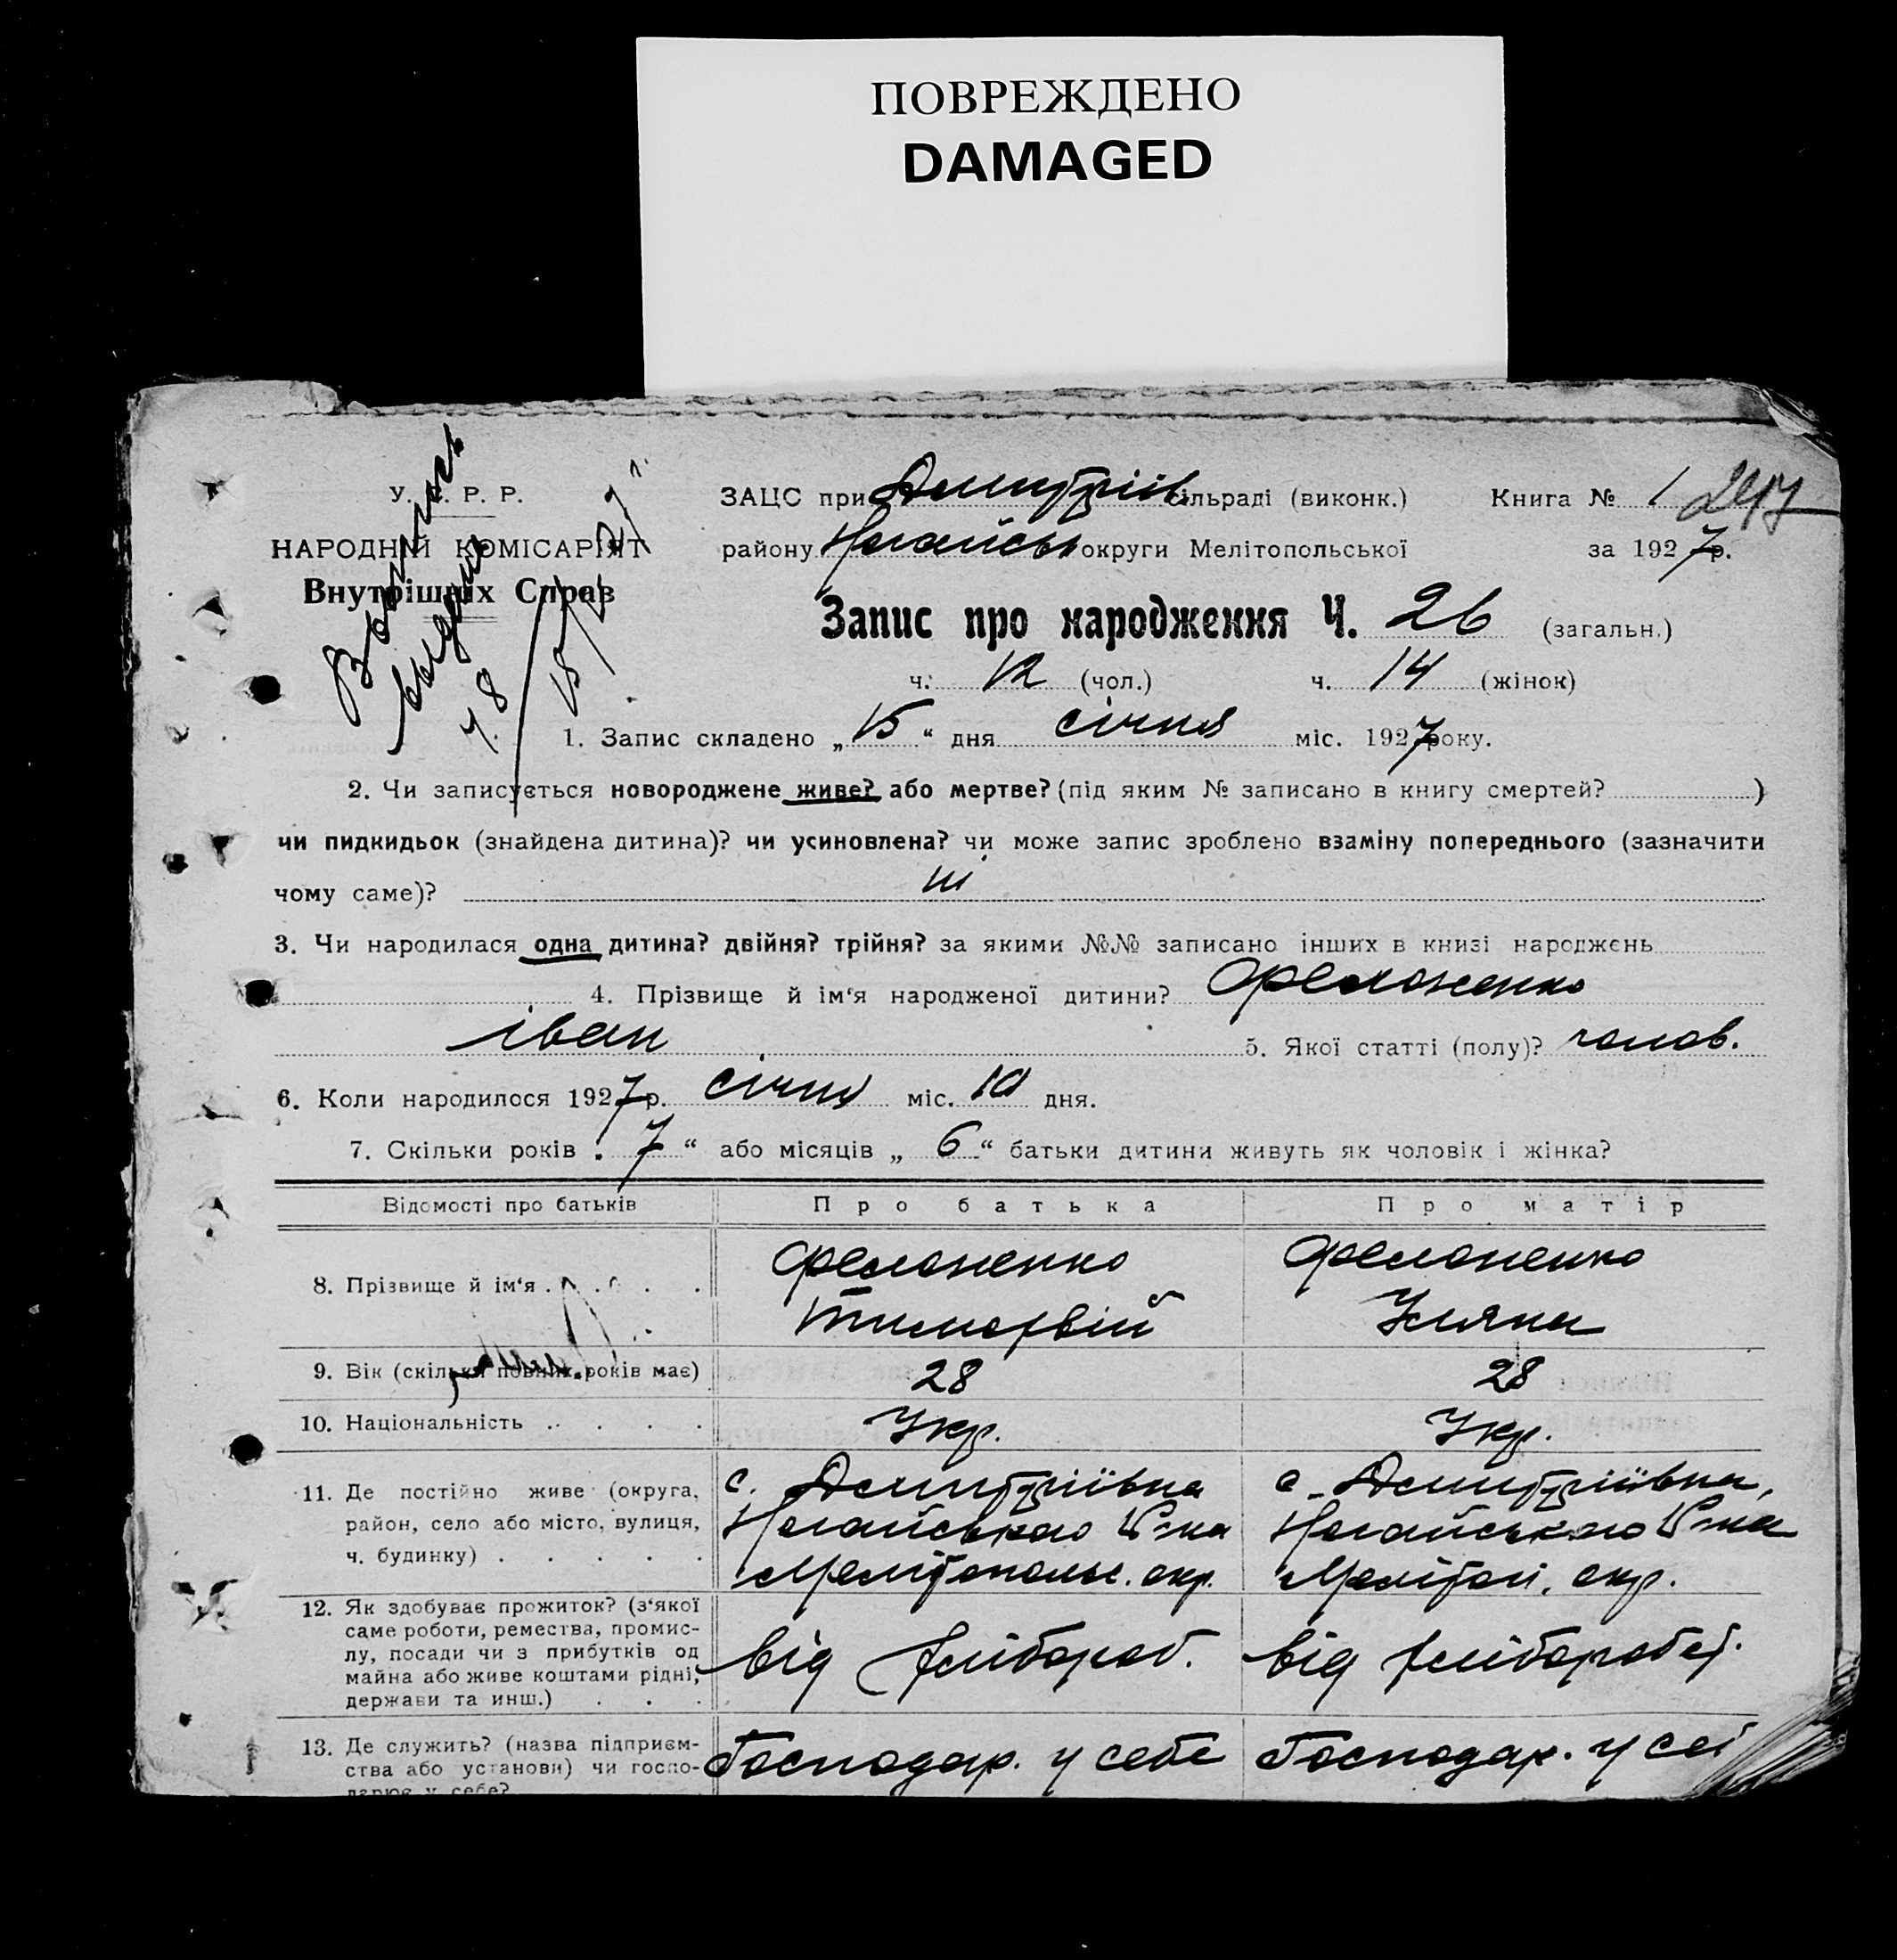 ПОВРЕЖДЕНО
DAMAGED
У. С. Р. Р.
НАРОДНІЙ КОМІСАРІЯТ
Внутрішніх Справ
Выпись
выдана
ЗАЦС при Дмитріїв. сільраді (виконк.) Книга № 1
району Ногайськ округи Мелітопольської за 1927 р.
Запис про народження Ч. 26 (загальн.)
ч. 12 (чол.) ч. 14 (жінок)
1. Запис складено „15“ дня січня міс. 1927 року.
2. Чи записується новороджене живе? або мертве? (під яким № записано в книгу смертей? )
чи пидкидьок (знайдена дитина)? чи усиновлена? чи може запис зроблено взаміну попереднього (зазначити
чому саме)? ні
3. Чи народилася одна дитина? двійня? трійня? за якими №№ записано інших в книзі народжень
4. Прізвище й ім‘я народженої дитини? Филоненко
іван 5. Якої статті (полу)? чолов.
6. Коли народилося 1927 р. січня міс. 10 дня.
7. Скільки років „7“ або місяців „6“ батьки дитини живуть як чоловік і жінка?
Відомості про батьків Про батька Про матір
8. Прізвище й ім‘я . . . . . Филоненко Филоненко
Тимофвій Уляна
9. Вік (скільки повних років має) 28 28
10. Національність . . . . . Укр. Укр.
11. Де постійно живе (округа, с. Дмитріївка с. Дмитріївка,
район, село або місто, вулиця, Ногайського Р-на Ногайського Р-на
ч. будинку) . . . . . Мелітопольс. окр. Мелітоп. окр.
12. Як здобуває прожиток? (з‘якої
саме роботи, ремества, промис-
лу, посади чи з прибутків од
майна або живе коштами рідні, від хлібороб. від хліборобст.
держави та инш.) . . .
13. Де служить? (назва підприєм- Господар. у себе Господар. у себ
ства або установи) чи госпо-
дарює у себе?